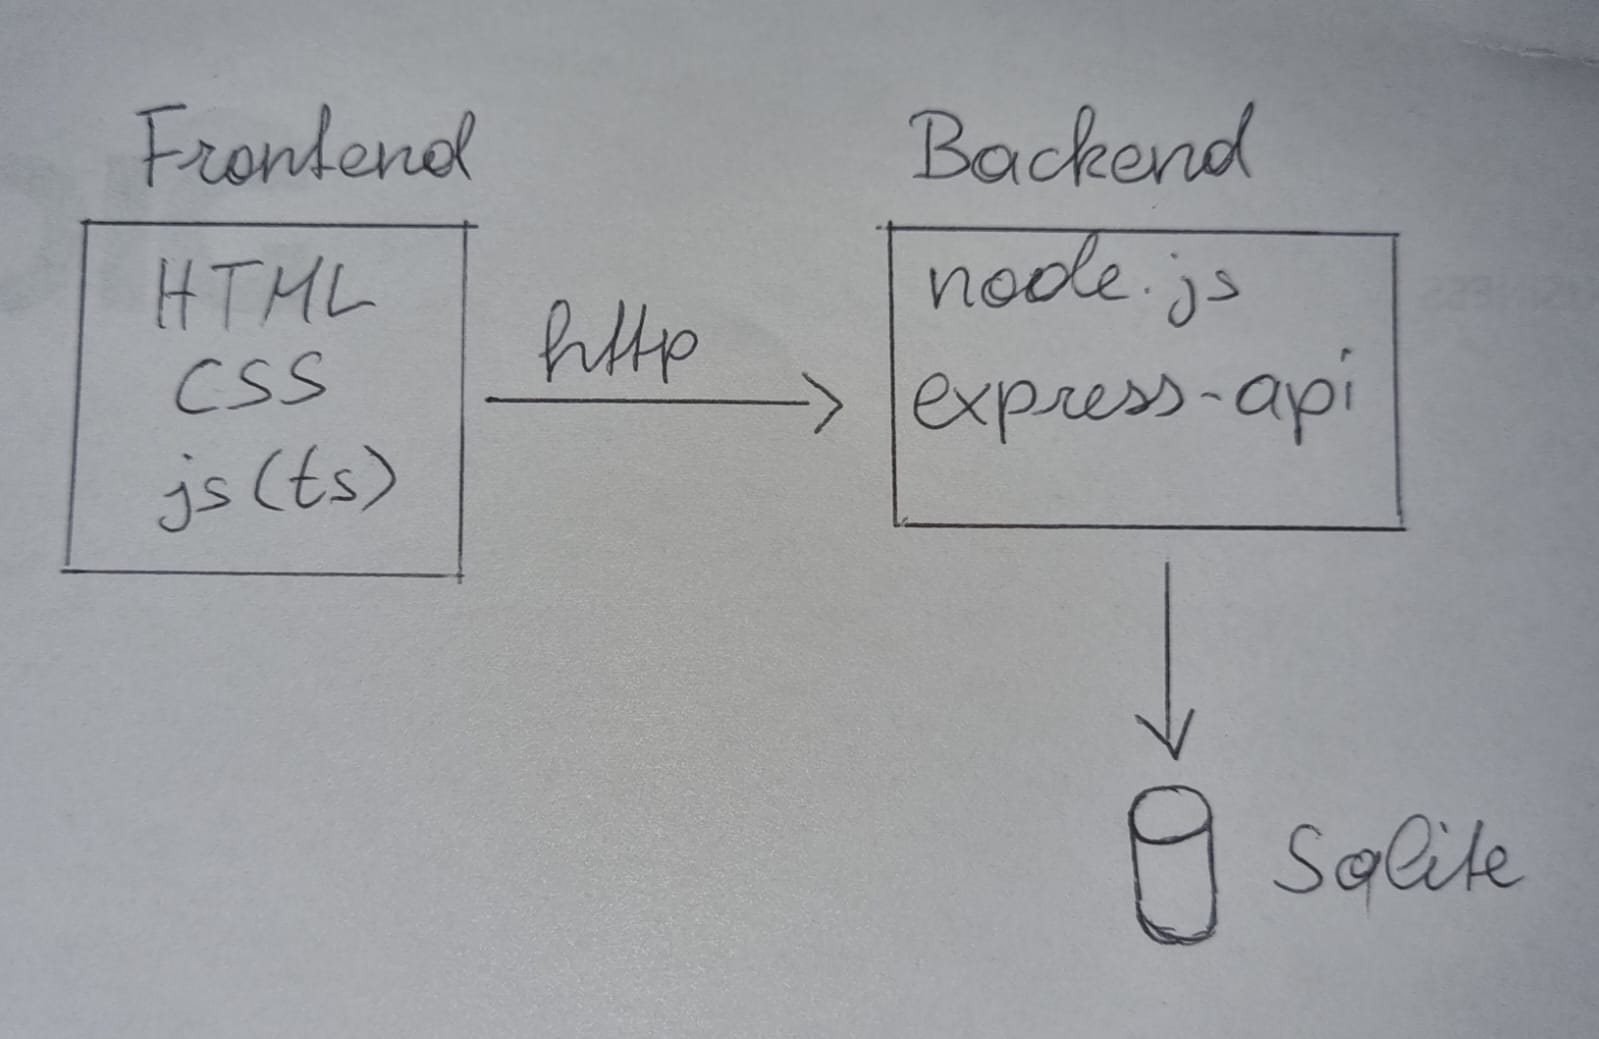 Frontend
HTML
CSS
js(ts)
http
Backend
node.js
express-api
Sqlite